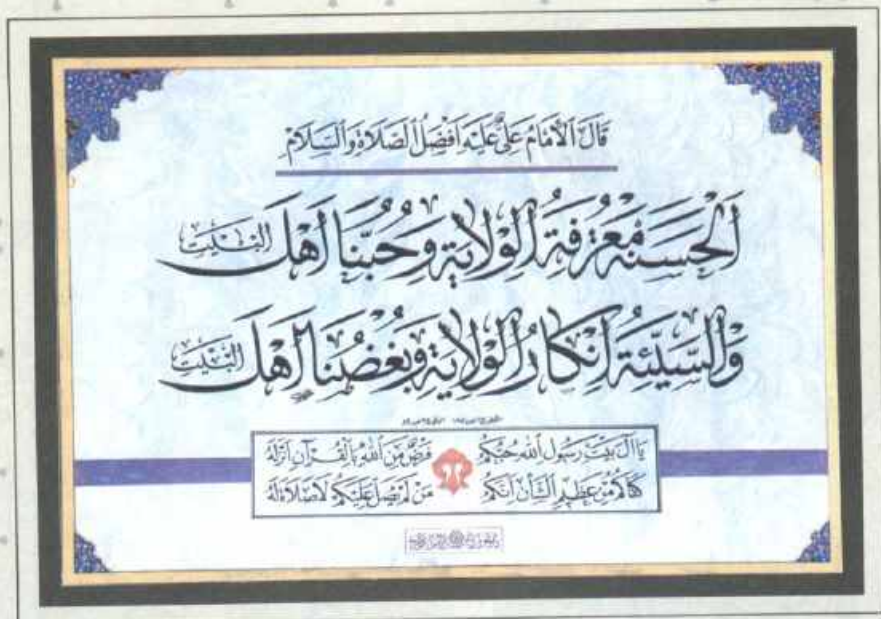 قَالَ الْأَمَامُ عَلِيٌّ عَلَيْهِ اَفْضَلُ الصَّلَاةِ وَالسَّلَامِ
اَلْحَسَنَةُ مَعْرِفَةُ الْوِلَايَةِ وَحُبُّنَا اَهْلَ الْبَيْتِ
وَالسَّيِّئَةُ اِنْكَارُ الْوِلَايَةِ وَبُغْضُنَا اَهْلَ الْبَيْتِ
يَا آلَ بَيْتِ رَسُولِ اللهِ حُبُّكُمُ فَرْضٌ مِنَ اللهِ بِالْقُرْآنِ اَنْزَلَهُ
كَفَاكُمُ مِنْ عَظِيمِ الشَّأْنِ اِنَّكُمُ مَنْ لَمْ يُصَلِّ عَلَيْكُمْ لَاصَلَاةَ لَهُ